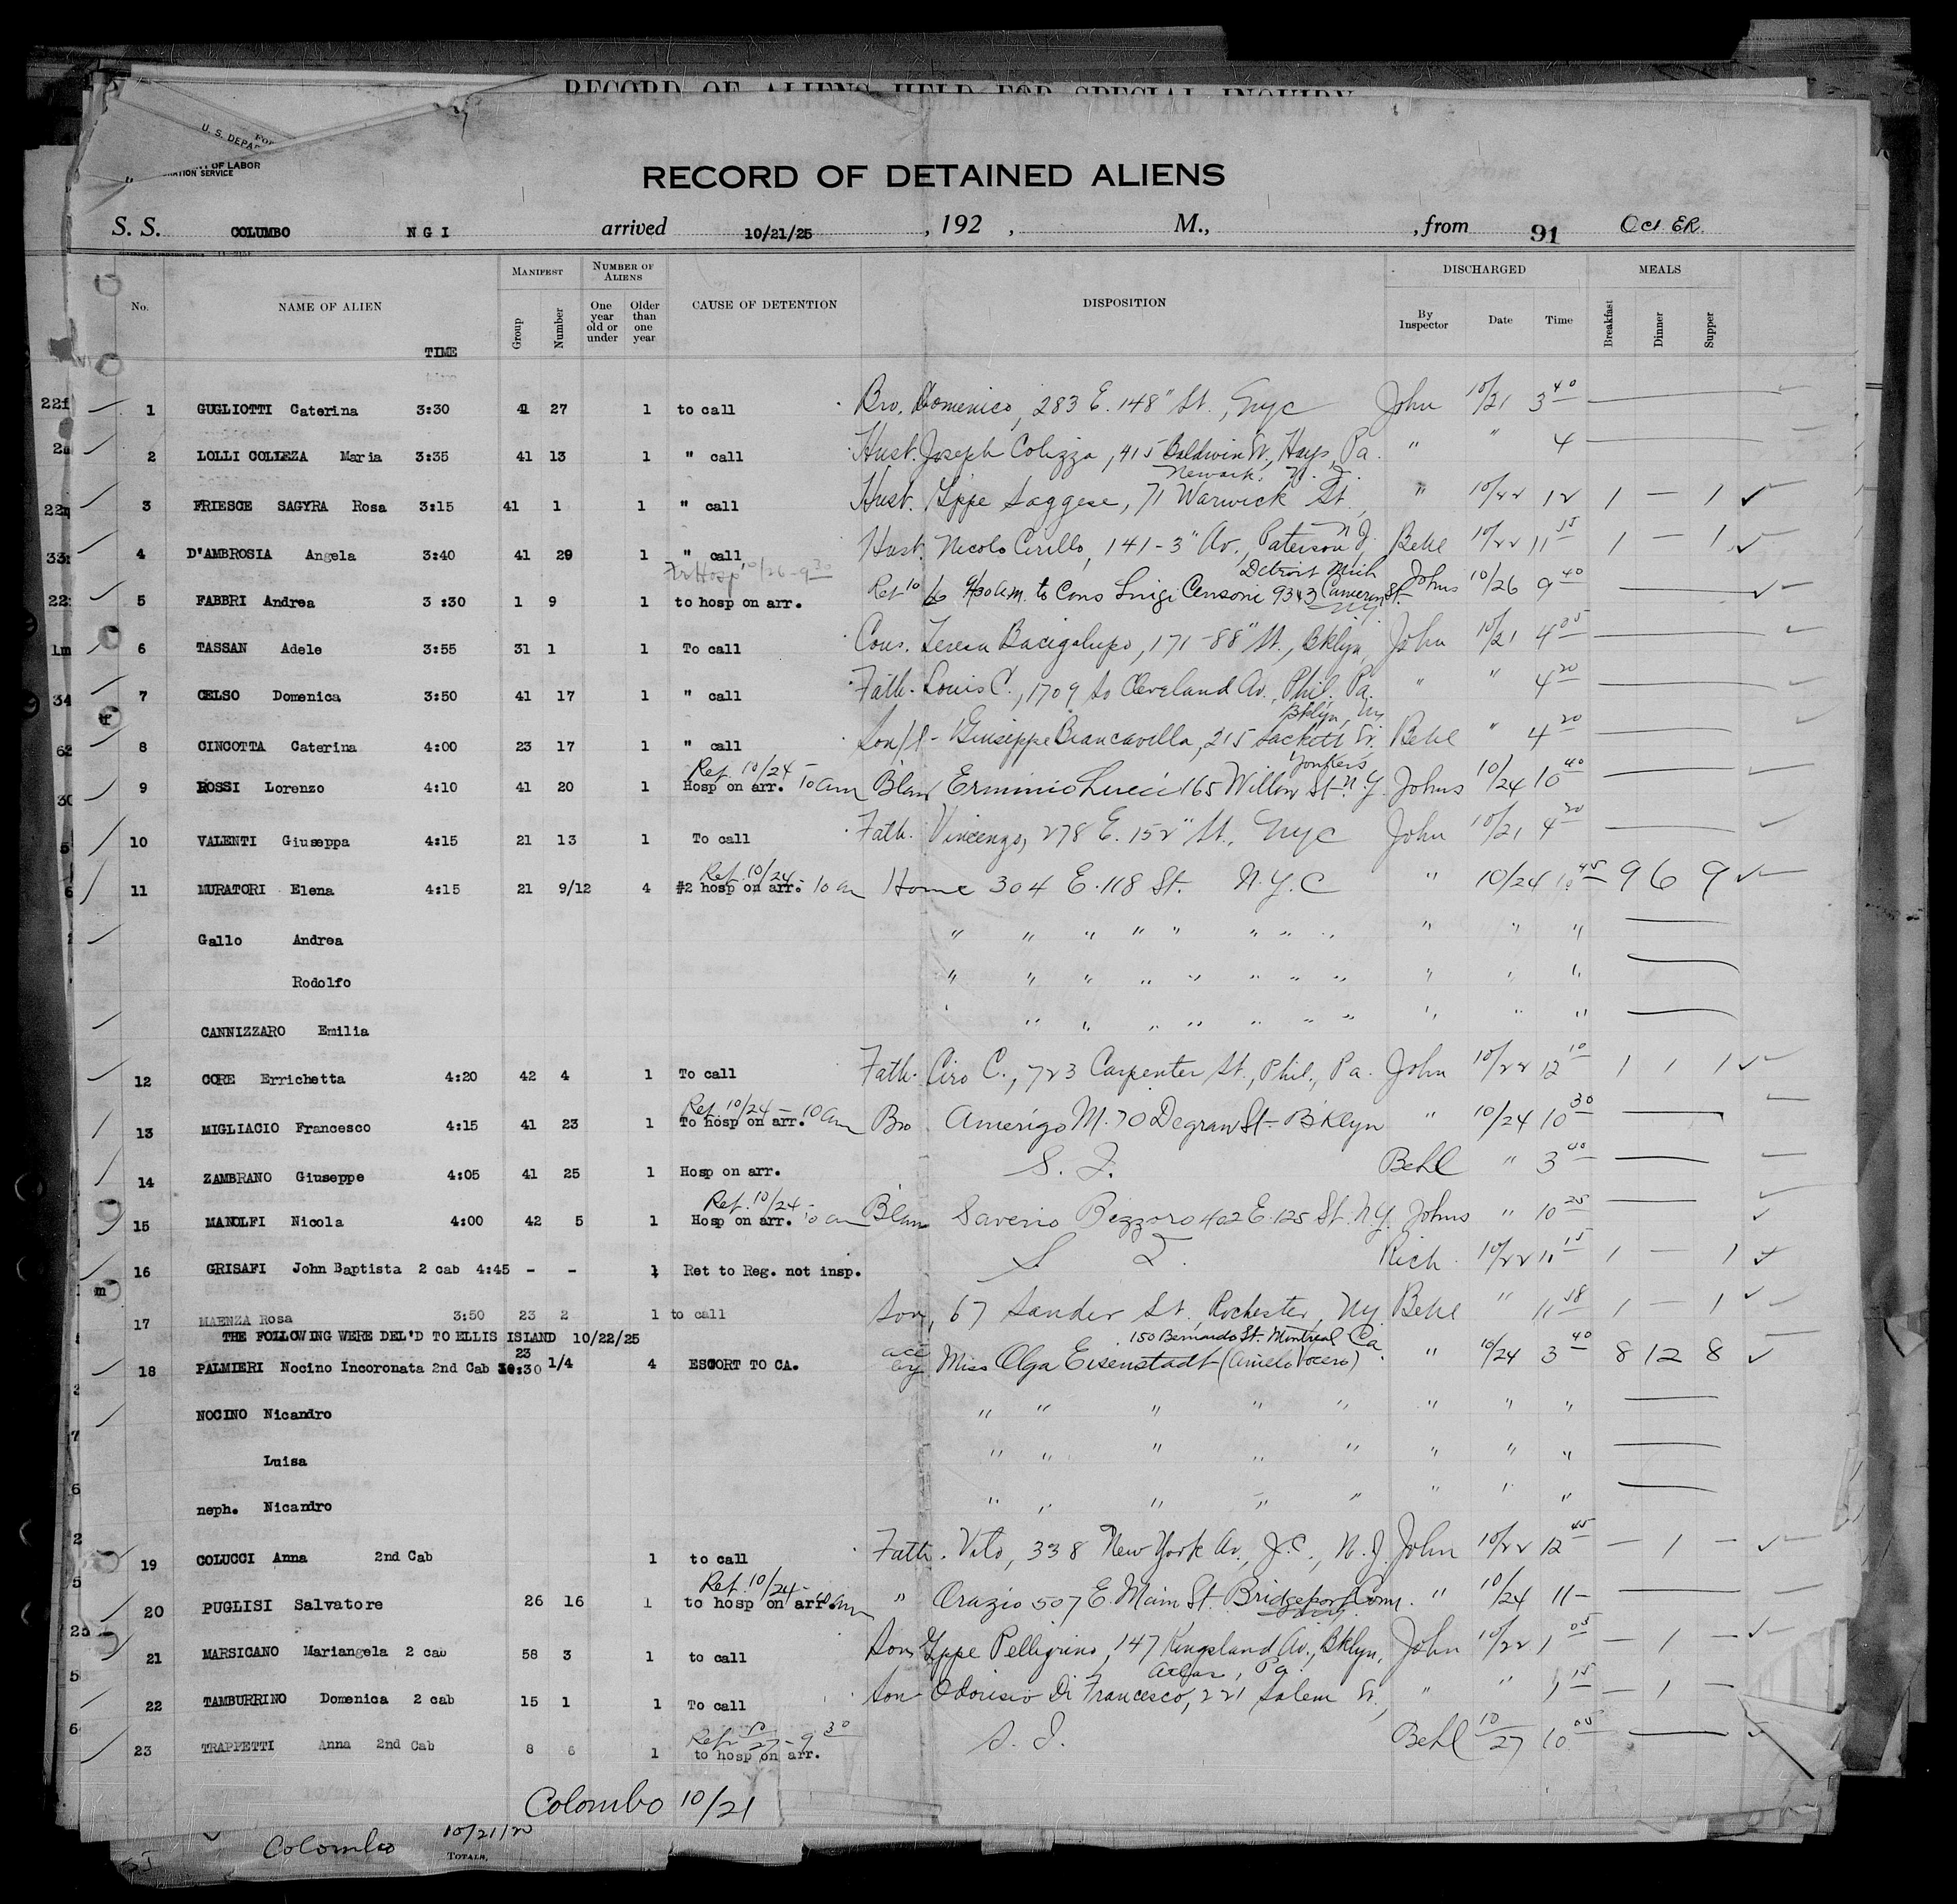 RECORD OF ALIENS HELD FOR SPECIAL INQUIRY
U. S. DEPAR
OF LABOR
RATION SERVICE
RECORD OF DETAINED ALIENS
S. S. COLUMBO N G I arrived 10/21/25 , 192 , M., , from 91 Oct ER.
No. NAME OF ALIEN TIME MANIFEST Group Number NUMBER OF ALIENS One year old or under Older than one year CAUSE OF DETENTION DISPOSITION DISCHARGED By Inspector Date Time MEALS Breakfast Dinner Supper
1 GUGLIOTTI Caterina 3:30 41 27 1 to call Bro. Domenico, 283 E. 148" St., NYC John 10/21 3 40
2 LOLLI COLIZZA Maria 3:35 41 13 1 " call Husb. Joseph Colizza, 415 Baldwin St., Hays, Pa. " " 4
Newark, N. J.
3 FRIESCE SAGYRA Rosa 3:15 41 1 1 " call Husb. Gppe Saggese, 71 Warwick St. " 10/22 12 1 — 1 ✓
4 D'AMBROSIA Angela 3:40 41 29 1 " call Husb. Nicolo Cirillo, 141-3" Av., Paterson N.J. Behl 10/22 11 15 1 — 1 ✓
Fr Hosp 10/26-9 30 Detroit Mich
5 FABBRI Andrea 3:30 1 9 1 to hosp on arr. Ret 10/26 9/30 am. to Cons Luigi Censoni 9343 Cameron St. Johns 10/26 9 40
6 TASSAN Adele 3:55 31 1 1 To call Cous. Teresa Bacigalupo, 171-88" St., Bklyn John 10/21 4 05
7 CELSO Domenica 3:50 41 17 1 " call Fath. Louis C., 1709 So Cleveland Av., Phil. Pa. " " 4 20
Bklyn, NY
8 CINCOTTA Caterina 4:00 23 17 1 " call Son/l- Giuseppe Biancavilla, 215 Sackett St. Behl " 4 20
Ret. 10/24 - 10 am Yonkers
9 ROSSI Lorenzo 4:10 41 20 1 Hosp on arr. B'law Erminio Lucci 165 Willow St- N.Y. Johns 10/24 10 40
10 VALENTI Giuseppa 4:15 21 13 1 To call Fath. Vincenzo, 278 E. 152" St., NYC John 10/21 4 20
Ret. 10/24 - 10 am
11 MURATORI Elena 4:15 21 9/12 4 #2 hosp on arr. Home 304 E. 118 St. N.Y.C " 10/24 10 45 9 6 9 ✓
Gallo Andrea " " " " " " " " " " "
Rodolfo " " " " " " " " " " "
CANNIZZARO Emilia " " " " " " " " " " "
12 CORE Errichetta 4:20 42 4 1 To call Fath. Ciro C., 723 Carpenter St., Phil., Pa. John 10/22 12 10 1 1 1 ✓
Ret. 10/24 - 10 am
13 MIGLIACIO Francesco 4:15 41 23 1 To hosp on arr. Bro Amerigo M. 70 Degraw St- B'klyn " 10/24 10 30
14 ZAMBRANO Giuseppe 4:05 41 25 1 Hosp on arr. S. I. Behl " 3 00
Ret. 10/24 - 10 am
15 MANOLFI Nicola 4:00 42 5 1 Hosp on arr. B'law Saverio Bezzoro 402 E. 125 St. N.Y. Johns " 10 25
16 GRISAFI John Baptista 2 cab 4:45 - - 1 Ret to Reg. not insp. S. I. Rich. 10/22 11 15 1 — 1 ✓
17 MAENZA Rosa 3:50 23 2 1 to call Son, 67 Sander St., Rochester, NY Behl " 11 58 1 — 1 ✓
THE FOLLOWING WERE DEL'D TO ELLIS ISLAND 10/22/25
150 Bernardo St- Montreal Ca.
18 PALMIERI Nocino Incoronata 2nd Cab 10:30 23 1/4 4 ESCORT TO CA. acc by Miss Olga Eisenstadt " 10/24 3 40 8 12 8 ✓
NOCINO Nicandro " " " " " " " "
Luisa " " " " " " " "
neph. Nicandro " " " " " " "
19 COLUCCI Anna 2nd Cab 1 to call Fath. Vito, 338 New York Av., J.C., N.J. John 10/22 12 45 — 1 — ✓
Ret. 10/24 - 10 am
20 PUGLISI Salvatore 26 16 1 to hosp on arr. " Orazio 507 E. Main St. Bridgeport Conn. " 10/24 11 -
21 MARSICANO Mariangela 2 cab 58 3 1 to call Son Gppe Pellegrino, 147 Kingsland Av., Bklyn, John 10/22 1 05 — 1 — ✓
22 TAMBURRINO Domenica 2 cab 15 1 1 To call Son Odorisio Di Francesco, 221 Salem St., " " 1 15 — 1 —
Ret. 10/27 - 9 30
23 TRAPPETTI Anna 2nd Cab 8 6 1 to hosp on arr. S. I. Behl 10/27 10 05
Colombo 10/21
Colombo 10/21/25
TOTALS,